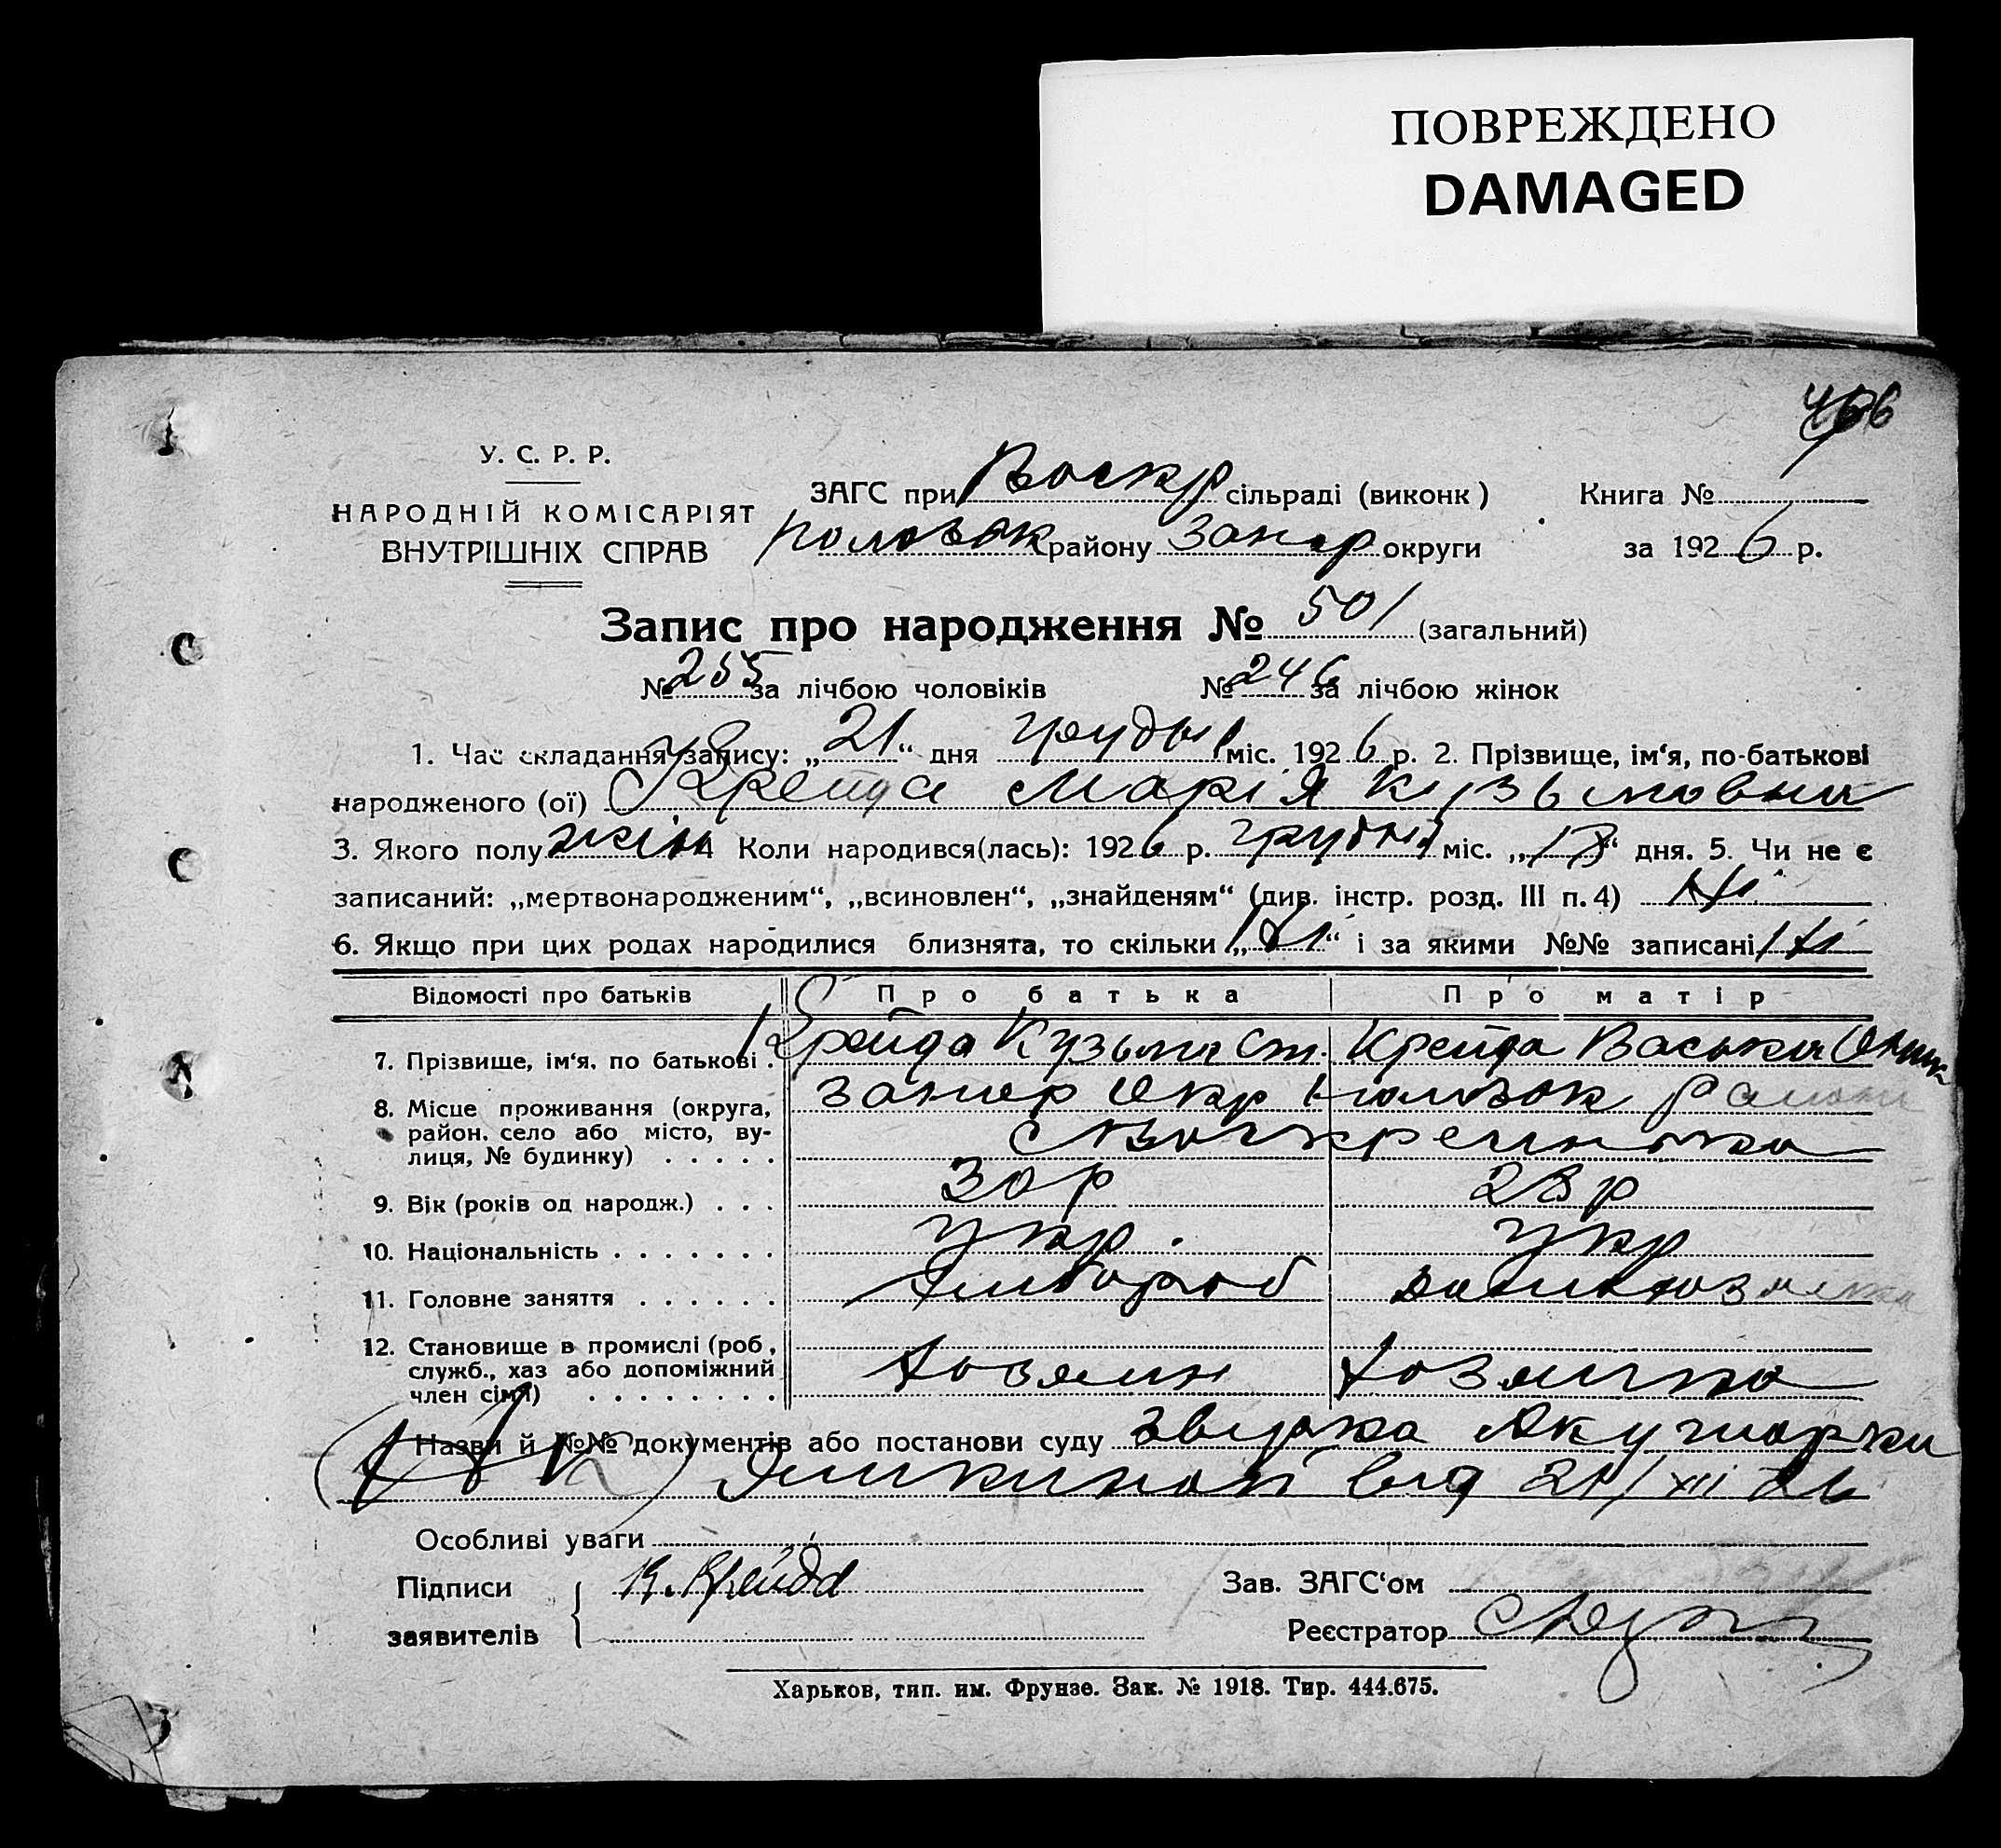 ПОВРЕЖДЕНО
DAMAGED
У. С. Р. Р.
НАРОДНІЙ КОМІСАРІЯТ
ВНУТРІШНІХ СПРАВ
ЗАГС при Воскр сільраді (виконк)
Пологівськ району Запор округи
Книга №
за 1926 р.
Запис про народження № 501 (загальний)
№ 255 за лічбою чоловіків № 246 за лічбою жінок
1. Час складання запису: „21“ дня грудня міс. 1926 р. 2. Прізвище, ім‘я, по-батькові
народженого (ої) Крейда Марія Кузьмовна
3. Якого полу жін 4 Коли народився(лась): 1926 р. грудня міс. „18“ дня. 5. Чи не є
записаний: „мертвонародженим“, „всиновлен“, „знайденям“ (див. інстр. розд. III п. 4) Ні
6. Якщо при цих родах народилися близнята, то скільки „Ні“ і за якими №№ записані Ні
Відомості про батьків Про батька Про матір
7. Прізвище, ім‘я, по батькові . Крейда Кузьма Ст. Крейда Васька
8. Місце проживання (округа, район, село або місто, вулиця, № будинку) . . . . . Запор Окр район
с Воскресенка
9. Вік (років од народж.) . . . 30 р 28 р
10. Національність . . . . . . . Укр. Укр
11. Головне заняття . . . . . . Хлібороб
12. Становище в промислі (роб, служб., хаз або допоміжний член сім‘ї) . . . . . . . . Хозяин Хозяйка
Назви й №№ документів або постанови суду Звістка Акушорки
від 21/XII 26
Особливі уваги
Підписи К. Крейда Зав. ЗАГС‘ом
заявителів Реєстратор
Харьков, тип. им. Фрунзе. Зак. № 1918. Тир. 444.675.